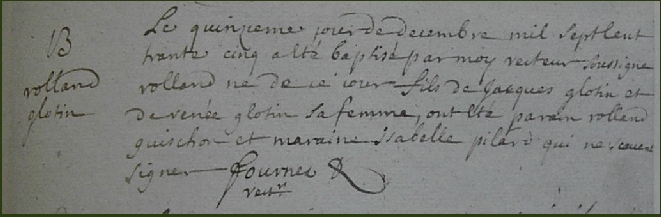 B
rolland
glotin
Le quinzieme jour de decembre mil sept cent
trante cinq a esté baptisé par moy recteur soussigne
rolland ne de ce iour fils de Jacques glotin et
de renée glotin sa femme, ont esté parain rolland
guischon et maraine isabelle pilard qui ne scavent
signer fournel R
rectr